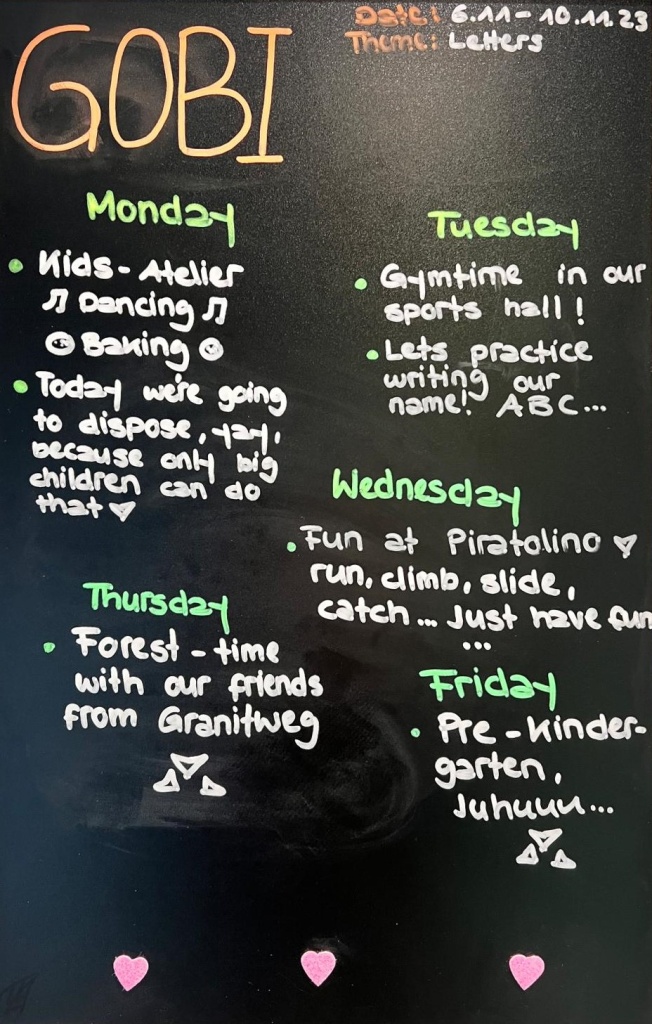 GOBI
Date: 6.11 - 10.11.23
Theme: Letters
Monday
Kids - Atelier
♫ Dancing ♫
Baking
Today we're going
to dispose, yay,
because only big
children can do
that ♡
Tuesday
Gymtime in our
sports hall!
Lets practice
writing our
name! ABC...
Wednesday
Fun at Piratolino ♡
run, climb, slide,
catch... Just have fun
...
Thursday
Forest - time
with our friends
from Granitweg
Friday
Pre - Kinder-
garten,
Juhuuu...